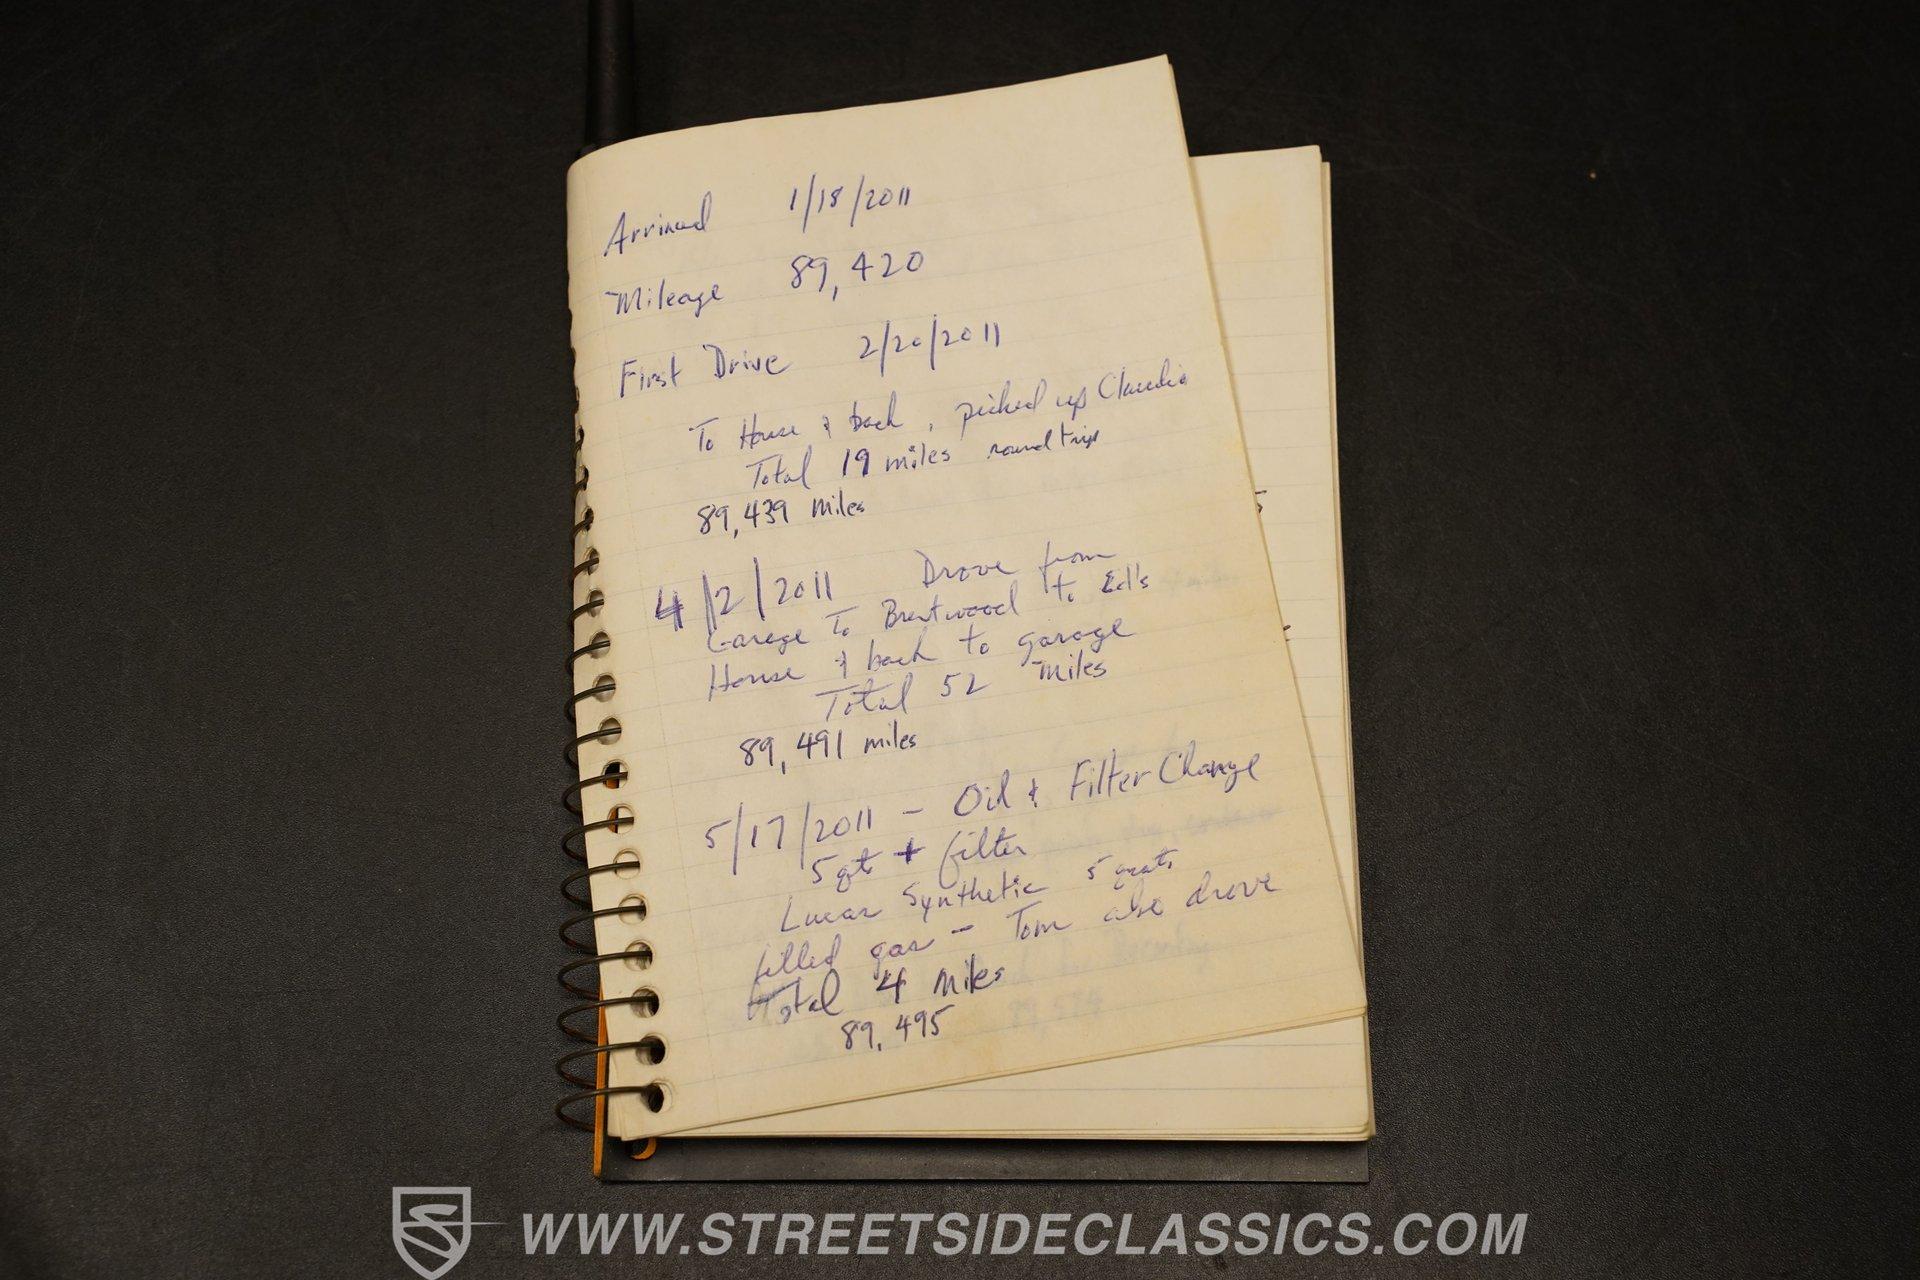 Arrived 1/18/2011
Mileage 89,420
First Drive 2/20/2011
To House & back, picked up Claudia
Total 19 miles round trip
89,439 miles
4/2/2011 Drove from
Garage To Brentwood to Ed's
House & back to garage
Total 52 miles
89,491 miles
5/17/2011 - Oil & Filter Change
5 qts + filter
Lucas Synthetic 5 qrats
filled gas - Tom also drove
Total 4 miles
89,495
WWW.STREETSIDECLASSICS.COM